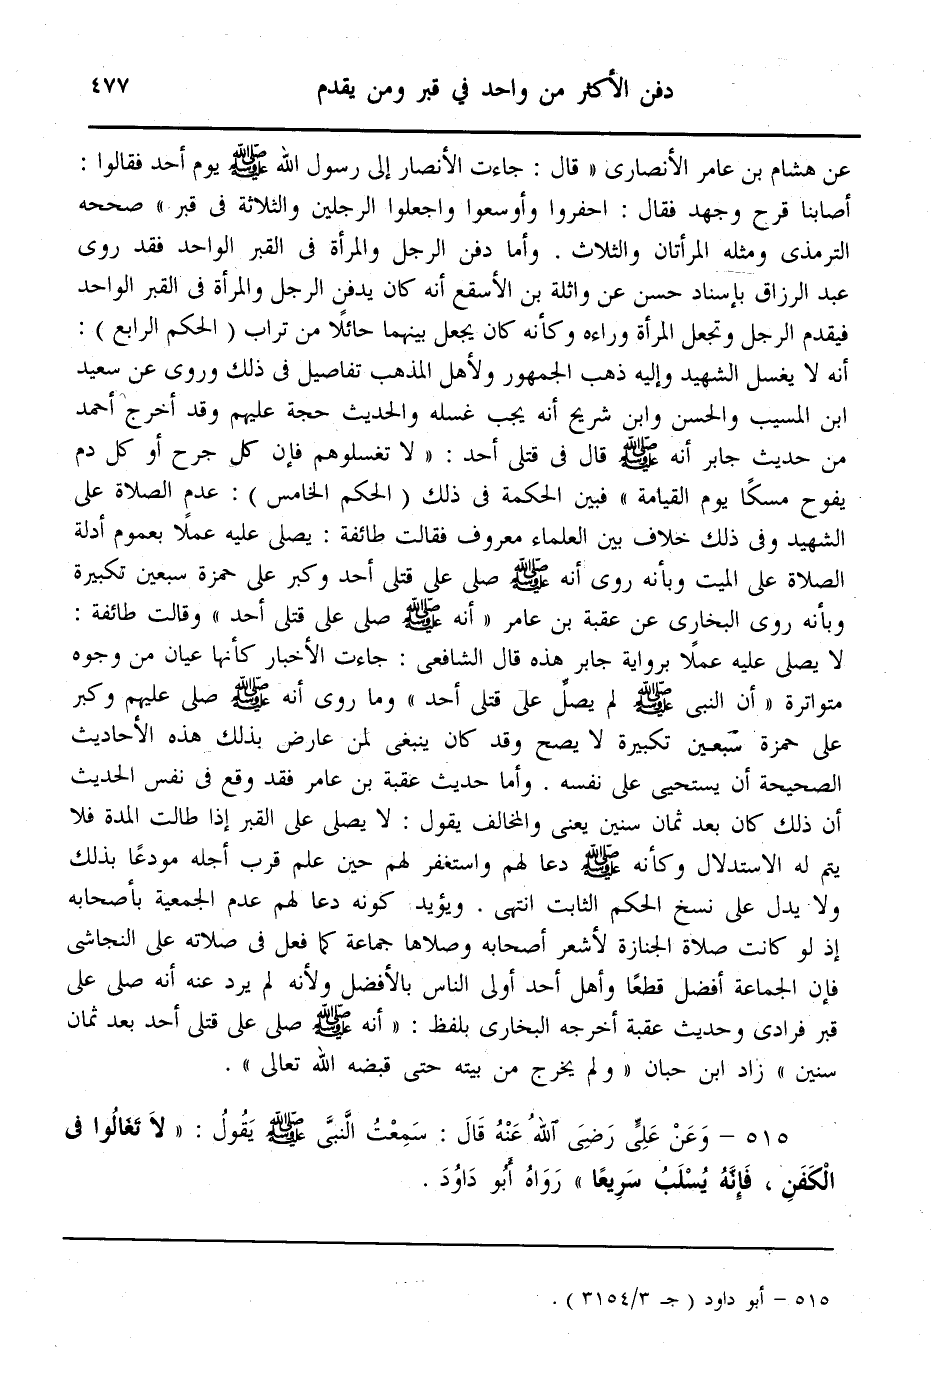 دفن الأكثر من واحد في قبر ومن يقدم ٤٧٧
عن هشام بن عامر الأنصارى « قال : جاءت الأنصار إلى رسول الله ﷺ يوم أحد فقالوا :
أصابنا قرح وجهد فقال : احفروا وأوسعوا واجعلوا الرجلين والثلاثة فى قبر » صححه
الترمذى ومثله المرأتان والثلاث . وأما دفن الرجل والمرأة فى القبر الواحد فقد روى
عبد الرزاق بإسناد حسن عن واثلة بن الأسقع أنه كان يدفن الرجل والمرأة فى القبر الواحد
فيقدم الرجل وتجعل المرأة وراءه وكأنه كان يجعل بينهما حائلًا من تراب ( الحكم الرابع ) :
أنه لا يغسل الشهيد وإليه ذهب الجمهور ولأهل المذهب تفاصيل فى ذلك وروى عن سعيد
ابن المسيب والحسن وابن شريح أنه يجب غسله والحديث حجة عليهم وقد أخرج أحمد
من حديث جابر أنه ﷺ قال فى قتلى أحد : « لا تغسلوهم فإن كل جرح أو كل دم
يفوح مسكًا يوم القيامة » فبين الحكمة فى ذلك ( الحكم الخامس ) : عدم الصلاة على
الشهيد وفى ذلك خلاف بين العلماء معروف فقالت طائفة : يصلى عليه عملًا بعموم أدلة
الصلاة على الميت وبأنه روى أنه ﷺ صلى على قتلى أحد وكبر على حمزة سبعين تكبيرة
وبأنه روى البخارى عن عقبة بن عامر « أنه ﷺ صلى على قتلى أحد » وقالت طائفة :
لا يصلى عليه عملًا برواية جابر هذه قال الشافعى : جاءت الأخبار كأنها عيان من وجوه
متواترة « أن النبى ﷺ لم يصلِّ على قتلى أحد » وما روى أنه ﷺ صلى عليهم وكبر
على حمزة سبعين تكبيرة لا يصح وقد كان ينبغى لمن عارض بذلك هذه الأحاديث
الصحيحة أن يستحيى على نفسه . وأما حديث عقبة بن عامر فقد وقع فى نفس الحديث
أن ذلك كان بعد ثمان سنين يعنى والمخالف يقول : لا يصلى على القبر إذا طالت المدة فلا
يتم له الاستدلال وكأنه ﷺ دعا لهم واستغفر لهم حين علم قرب أجله مودعًا بذلك
ولا يدل على نسخ الحكم الثابت انتهى . ويؤيد كونه دعا لهم عدم الجمعية بأصحابه
إذ لو كانت صلاة الجنازة لأشعر أصحابه وصلاها جماعة كما فعل فى صلاته على النجاشى
فإن الجماعة أفضل قطعًا وأهل أحد أولى الناس بالأفضل ولأنه لم يرد عنه أنه صلى على
قبر فرادى وحديث عقبة أخرجه البخارى بلفظ : « أنه ﷺ صلى على قتلى أحد بعد ثمان
سنين » زاد ابن حبان « ولم يخرج من بيته حتى قبضه الله تعالى » .
٥١٥ – وَعَنْ عَلِىٍّ رَضِىَ ٱللهُ عَنْهُ قَالَ : سَمِعْتُ النَّبِىَّ ﷺ يَقُولُ : « لاَ تَغَالُوا فى
الْكَفَنِ ، فَإِنَّهُ يُسْلَبُ سَرِيعًا » رَوَاهُ أَبُو دَاوُدَ .
٥١٥ – أبو داود ( جـ ٣/٣١٥٤ ) .